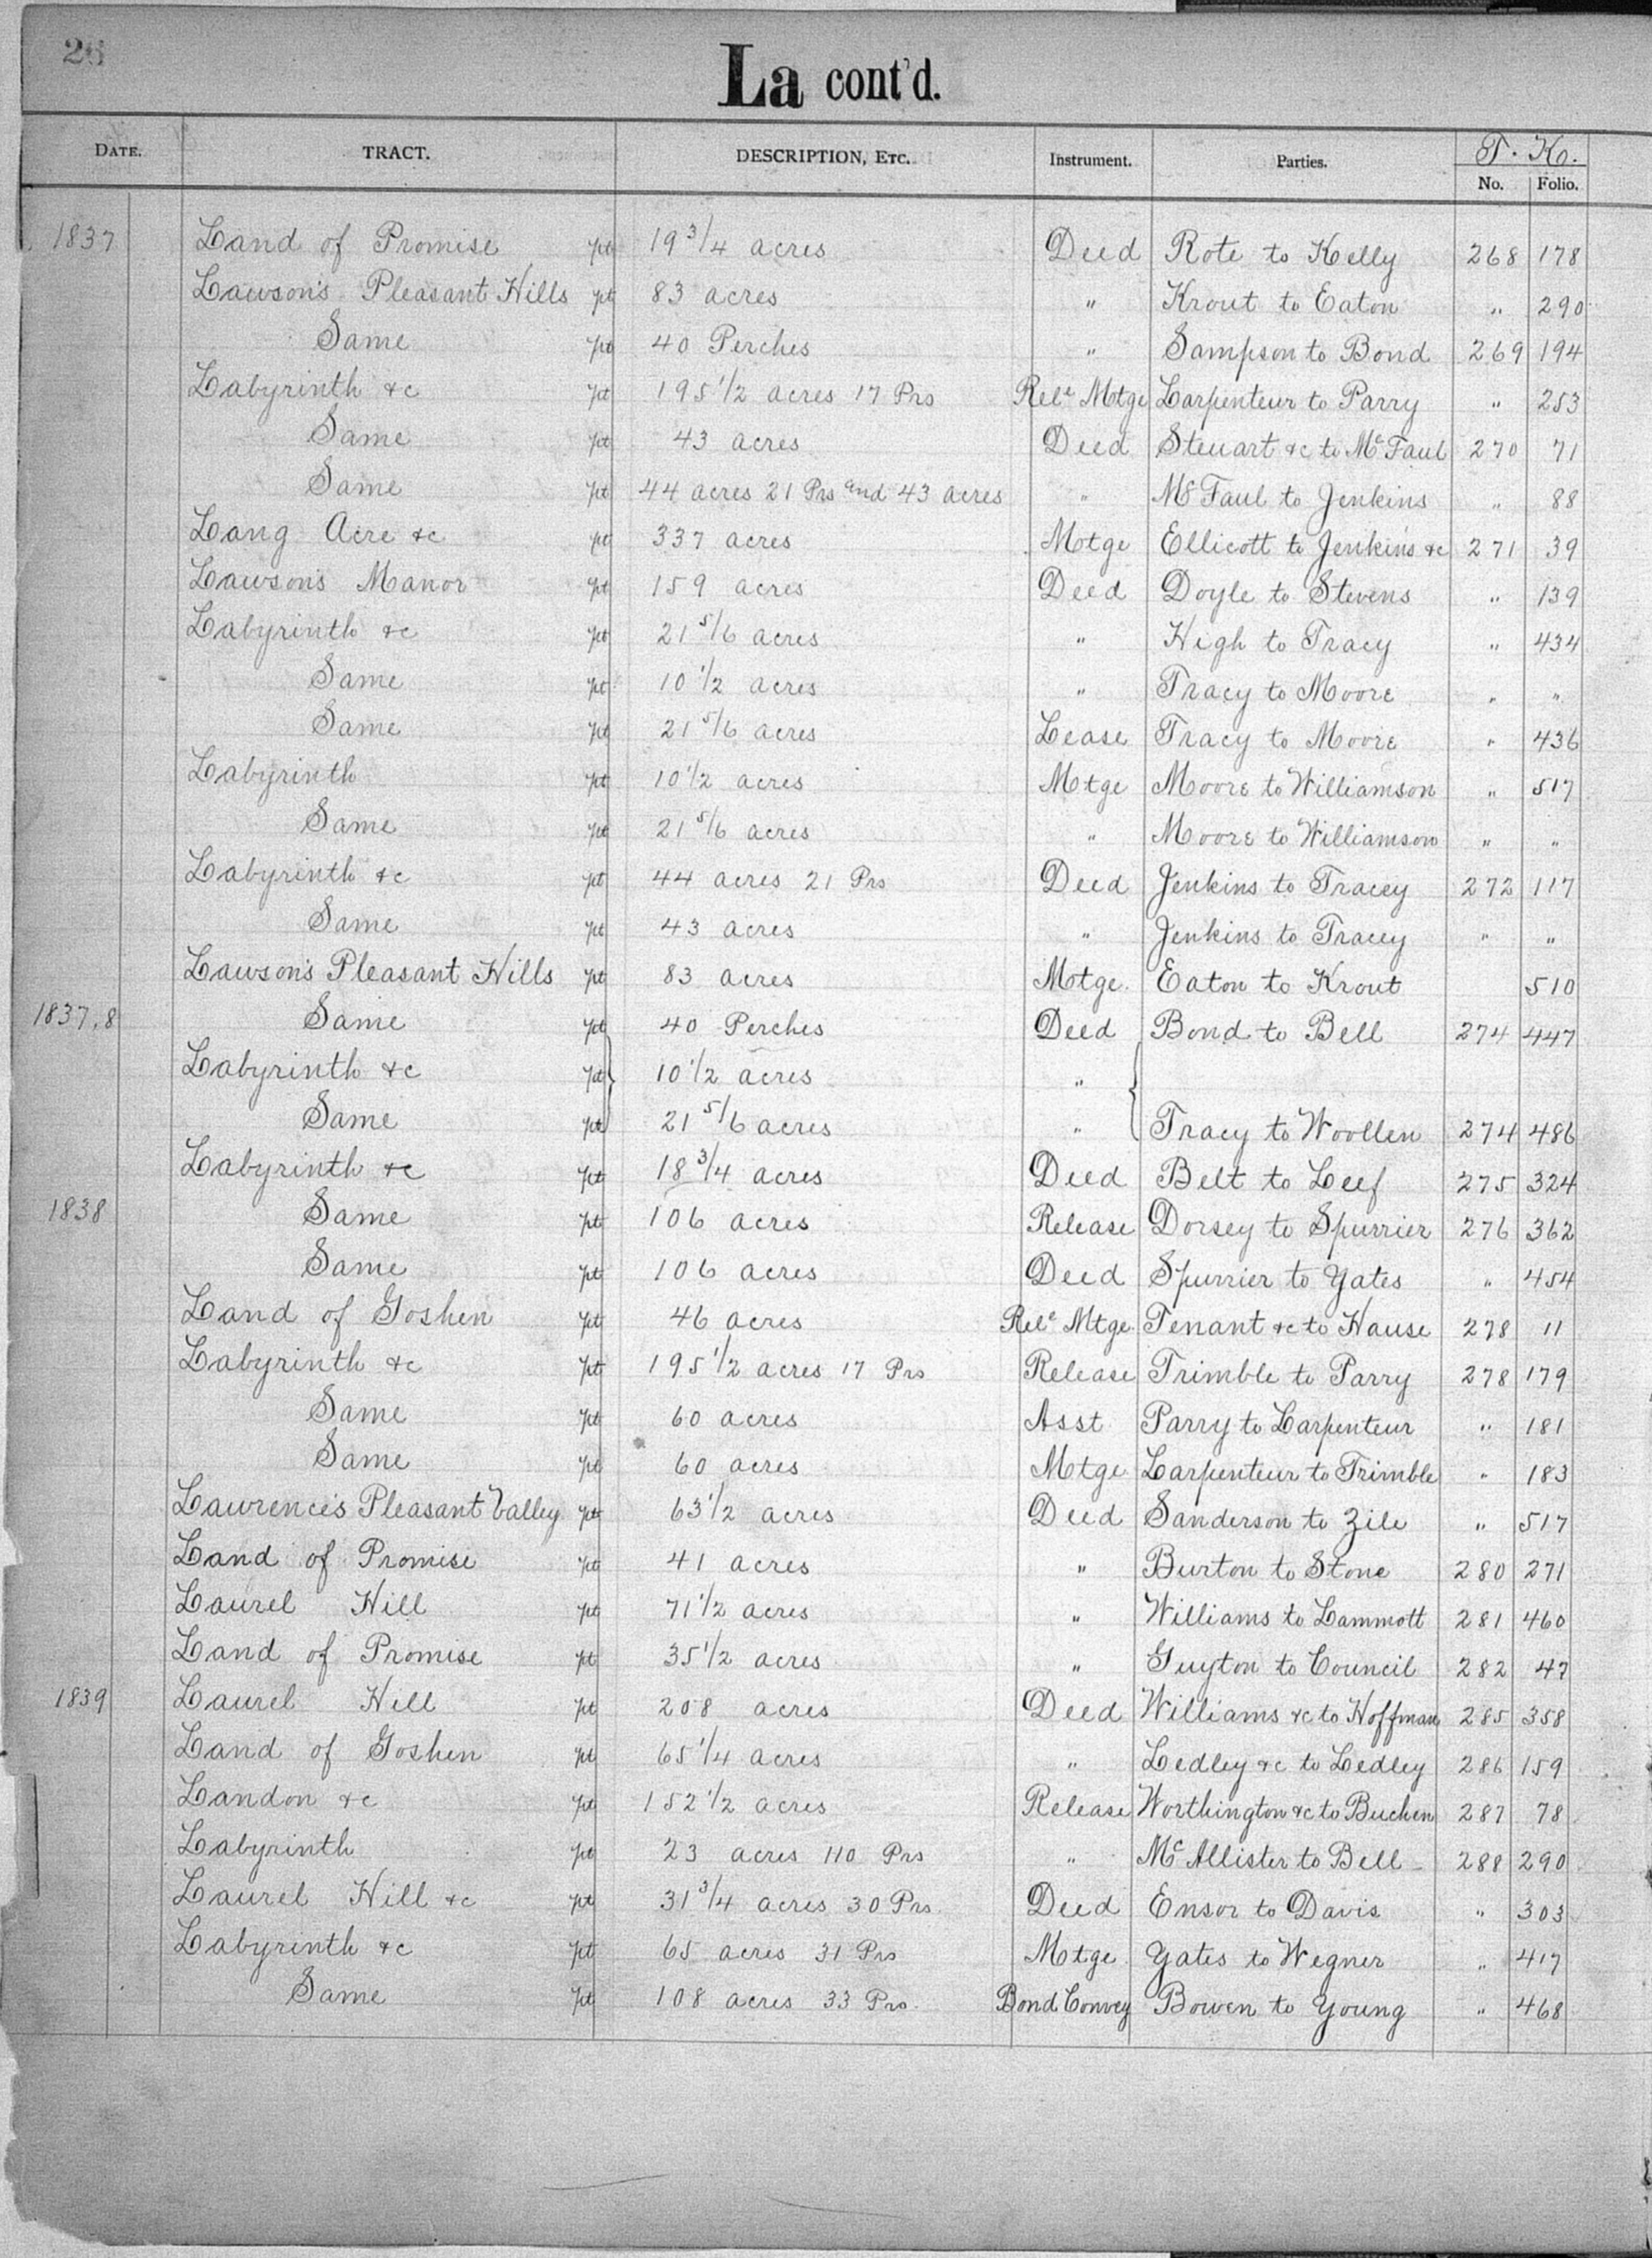 26
La cont'd.
DATE. TRACT. DESCRIPTION, ETC. Instrument. Parties. T. K. No. Folio.
1837 Land of Promise pt 19 3/4 acres Deed Rote to Kelly 268 178
Lawson's Pleasant Hills pt 83 acres " Krout to Eaton " 290
Same pt 40 Perches " Sampson to Bond 269 194
Labyrinth &c pt 195 1/2 acres 17 Prs Rele Motge Larpenteur to Parry " 253
Same pt 43 acres Deed Steuart &c to McFaul 270 71
Same pt 44 acres 21 Prs and 43 acres " McFaul to Jenkins " 88
Lang Acre &c pt 337 acres Motge Ellicott to Jenkins &c 271 39
Lawson's Manor pt 159 acres Deed Doyle to Stevens " 139
Labyrinth &c pt 21 5/6 acres " High to Tracy " 434
Same pt 10 1/2 acres " Tracy to Moore " "
Same pt 21 5/6 acres Lease Tracy to Moore " 436
Labyrinth pt 10 1/2 acres Motge Moore to Williamson " 517
Same pt 21 5/6 acres " Moore to Williamson " "
Labyrinth &c pt 44 acres 21 Prs Deed Jenkins to Tracey 272 117
Same pt 43 acres " Jenkins to Tracey " "
Lawson's Pleasant Hills pt 83 acres Motge. Eaton to Krout 510
1837,8 Same pt 40 Perches Deed Bond to Bell 274 447
Labyrinth &c pt 10 1/2 acres "
Same pt 21 5/6 acres " Tracy to Woollen 274 486
Labyrinth &c pt 18 3/4 acres Deed Belt to Leef 275 324
1838 Same pt 106 acres Release Dorsey to Spurrier 276 362
Same pt 106 acres Deed Spurrier to Yates " 454
Land of Goshen pt 46 acres Rele Mtge. Tenant &c to Hause 278 11
Labyrinth &c pt 195 1/2 acres 17 Prs Release Trimble to Parry 278 179
Same pt 60 acres Asst Parry to Larpenteur " 181
Same pt 60 acres Motge Larpenteur to Trimble " 183
Lawrence's Pleasant Valley pt 63 1/2 acres Deed Sanderson to Zile " 517
Land of Promise pt 41 acres " Burton to Stone 280 271
Laurel Hill pt 71 1/2 acres " Williams to Lammott 281 460
Land of Promise pt 35 1/2 acres " Guyton to Council 282 47
1839 Laurel Hill pt 208 acres Deed Williams &c to Hoffman 285 358
Land of Goshen pt 65 1/4 acres " Ledley &c to Ledley 286 159
Landon &c pt 152 1/2 acres Release Worthington &c to Buchen 287 78
Labyrinth pt 23 acres 110 Prs " McAllister to Bell 288 290
Laurel Hill &c pt 31 3/4 acres 30 Prs. Deed Ensor to Davis " 303
Labyrinth &c pt 65 acres 31 Prs Motge Yates to Wegner " 417
Same pt 108 acres 33 Prs. Bond Convey Bowen to Young " 468